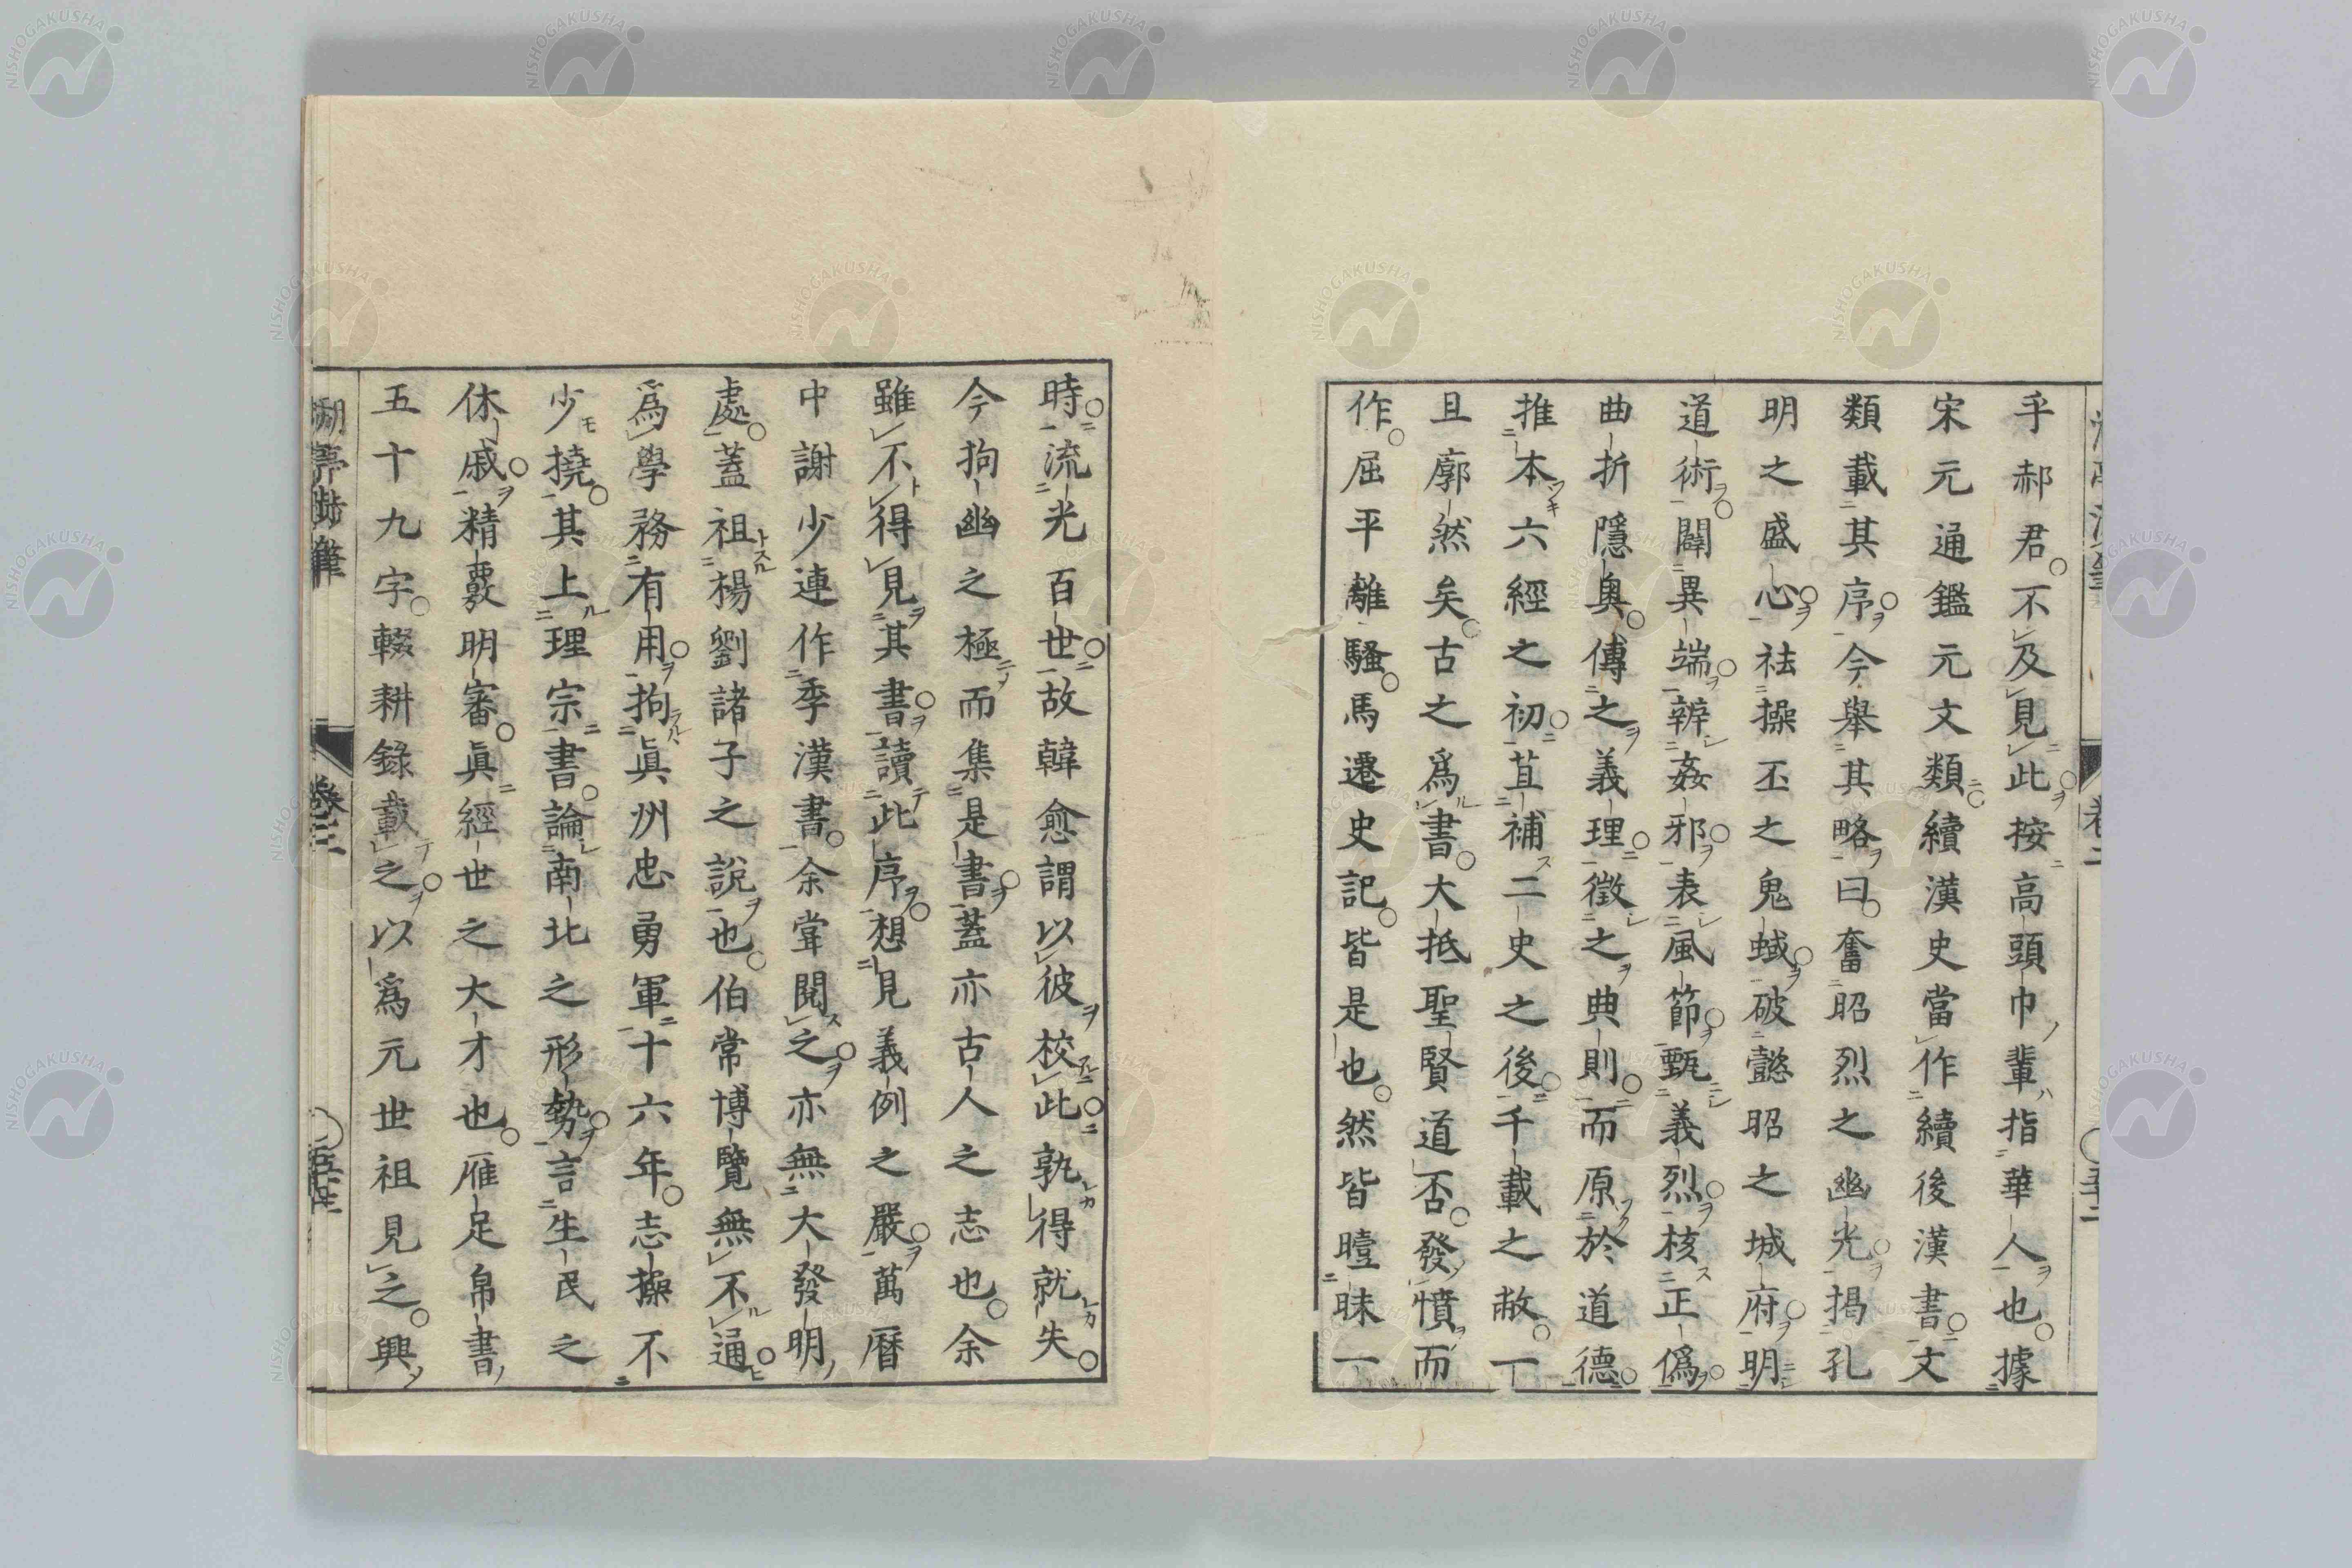 乎郝君不及見此按高頭巾輩指華人也據
宋元通鑑元文類續漢史當作續後漢書文
類載其序今舉其略曰奮昭烈之幽光揭孔
明之盛心祛操丕之鬼蜮破懿昭之城府明
道術闢異端辨姦邪表風節甄義烈核正僞
曲折隱奧傳之義理徵之典則而原於道德
推本六經之初苴補二史之後千載之敝一
且廓然矣古之爲書大抵聖賢道否發憤而
作屈平離騷馬遷史記皆是也然皆曀昧一
時流光百世故韓愈謂以彼校此孰得就失
今拘幽之極而集是書蓋亦古人之志也余
雖不得見其書讀此序想見義例之嚴萬曆
中謝少連作季漢書余嘗閱之亦無大發明
處蓋祖楊劉諸子之說也伯常博覽無不通
爲學務有用拘眞州忠勇軍十六年志操不
少撓其上理宗書論南北之形勢言生民之
休戚精覈明審眞經世之大才也雁足帛書
五十九字輟耕錄載之以爲元世祖見之興
卷三